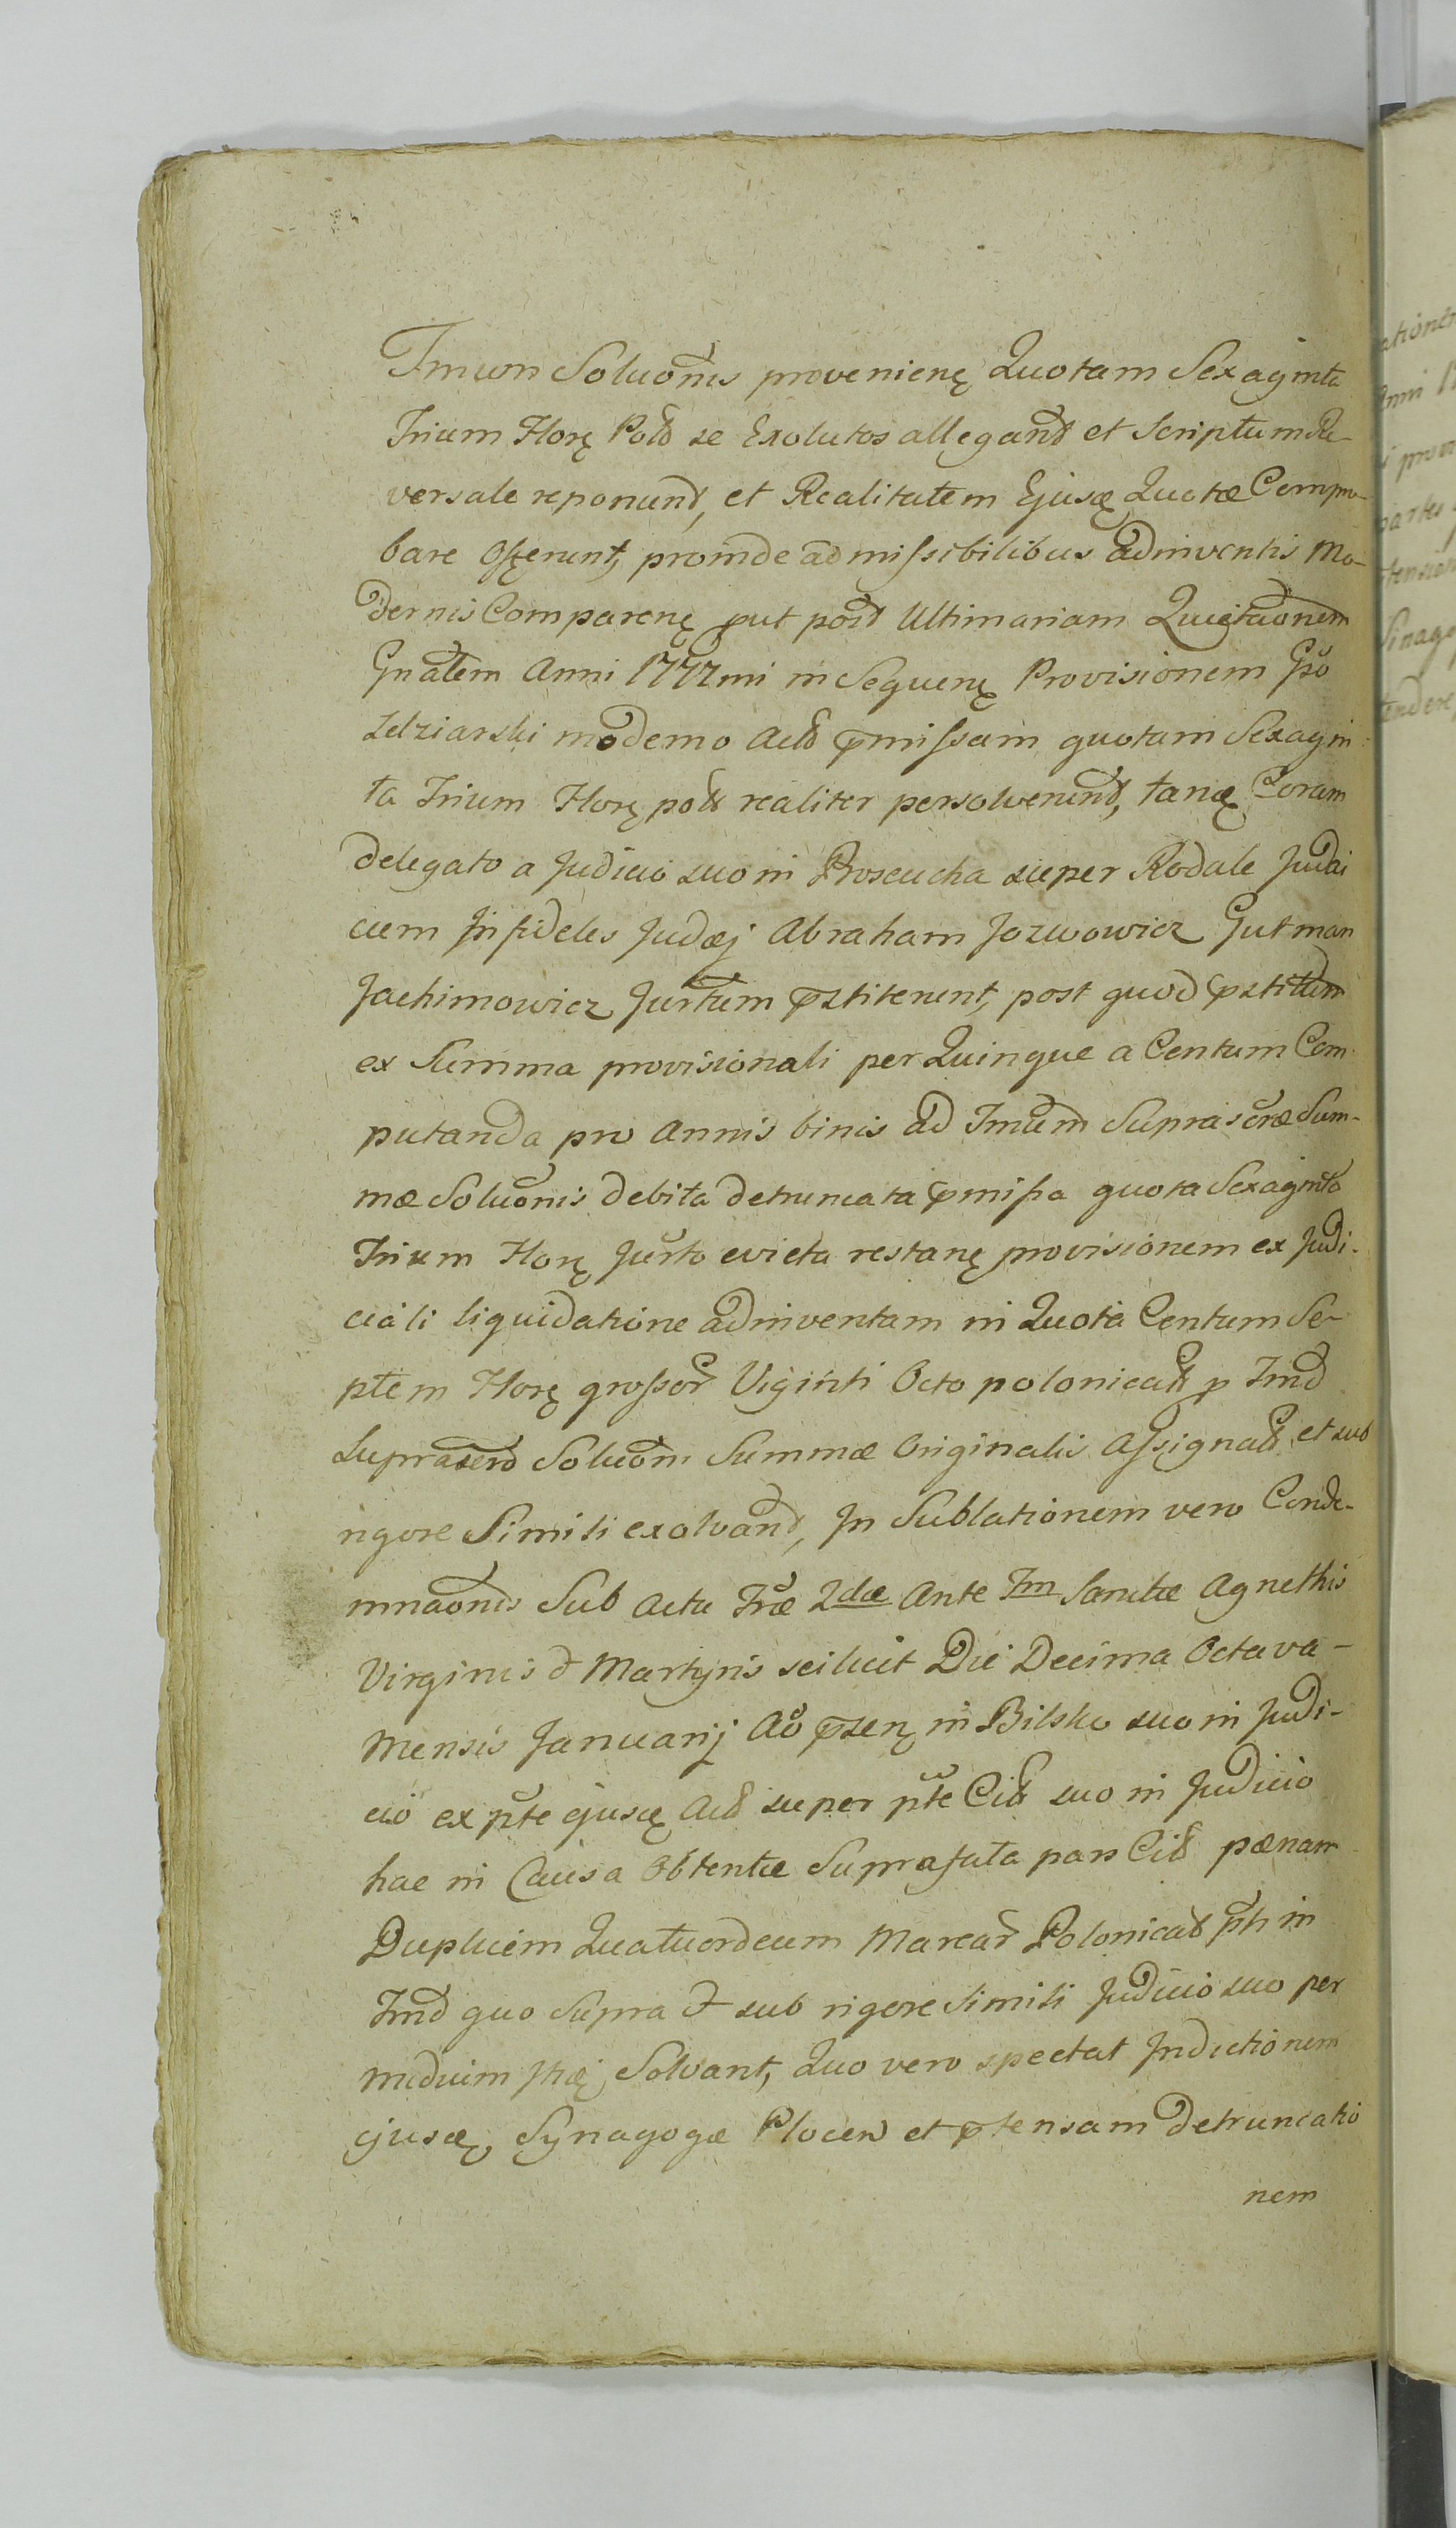 Tmum Soluonis provenienę Quotam Sexaginta
Trium Florę Pold se Exolutos allegand et Scriptum Re-
versale reponund, et Realitatem Ejusę Quotæ Compro-
bare Offerunt, proinde admissibilibus adinventis Mo-
dernis Comparenę put post Ultimariam Quietaonem
Gnalem Anni 1777mi in Sequenę Provisionem Gso
Zdziarski moderno Actd pmissam quotam Sexagin-
ta Trium Florę pold realiter persolverund, tanę Coram
delegato a Judicio suo in Proseucha super Rodale Judai
cum Infideles Judæj Abraham Jozwowicz Gutman
Jachimowicz Jurtum pstiterunt, post quod pstitum
ex Summa provisionali per Quinque a Centum Com-
putanda pro Annis binis ad Tmum Suprascræ Sum-
mæ Soluonis debita detruncata pmissa quota Sexaginta
Trium Florę Jurto evicta restanę provisionem ex Judi-
ciali liquidatione adinventam in Quota Centum Se-
ptem Florę grossor Viginti Octo polonicald p Tmd
Suprascrd Soluom Summæ Originalis Assignald et sub
rigore Simili exolvand, In Sublationem vero Conde-
mnaonis Sub Actu Fræ 2dæ Ante Fm Sanctæ Agnethis
Virginis & Martyris scilicet Die Decima Octava-
Mensis Januarij Ao psenę in Bilsko suo in Judi-
cio ex pte ejusę Actd super pte Citd suo in Judicio
hac in Causa Obtentæ Suprafata pars Citd pænam
Duplicem Quatuordecim Marcar Polonicald pti in
Tmd quo Supra & sub rigore simili Judicio suo per
medium Solvant, Quo vero spectat Inductionem
ejusę Synagogæ Plocen et ptensam Detruncatio
nem